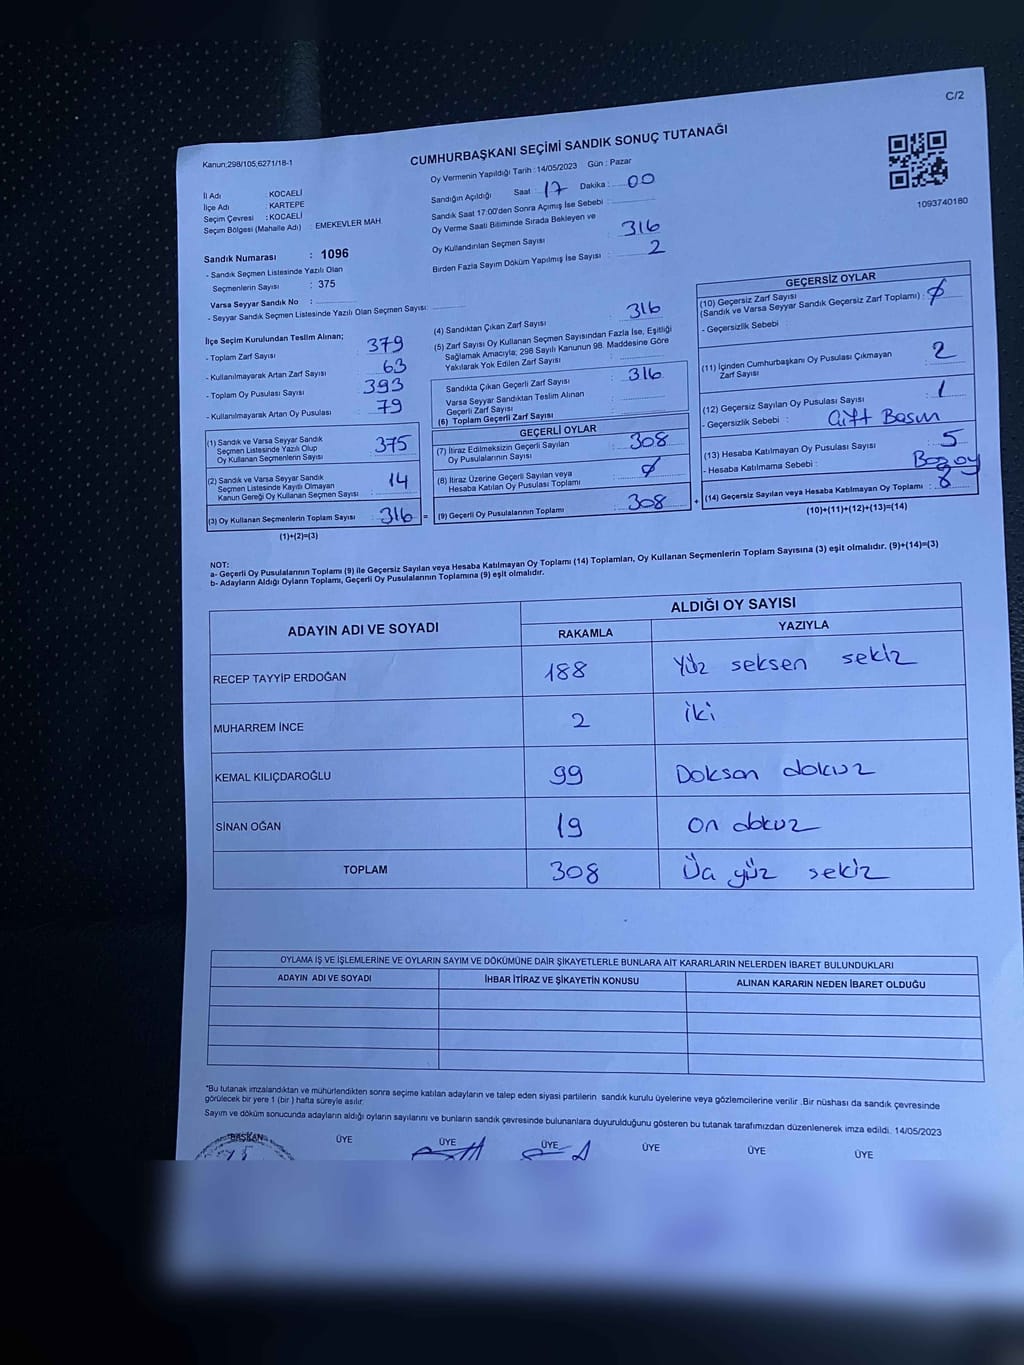 C/2
Kanun;298/105,6271/18-1
CUMHURBAŞKANI SEÇİMİ SANDIK SONUÇ TUTANAĞI
Oy Vermenin Yapıldığı Tarih : 14/05/2023 Gün : Pazar
1093740180
İl Adı KOCAELİ
İlçe Adı KARTEPE
Seçim Çevresi : KOCAELİ
Seçim Bölgesi (Mahalle Adı) : EMEKEVLER MAH
Sandık Numarası : 1096
- Sandık Seçmen Listesinde Yazılı Olan
Seçmenlerin Sayısı : 375
Varsa Seyyar Sandık No :
- Seyyar Sandık Seçmen Listesinde Yazılı Olan Seçmen Sayısı:
Sandığın Açıldığı Saat : 17 Dakika : 00
Sandık Saat 17:00'den Sonra Açımış İse Sebebi :
Oy Verme Saati Bitiminde Sırada Bekleyen ve
Oy Kullandırılan Seçmen Sayısı : 316
Birden Fazla Sayım Döküm Yapılmış İse Sayısı : 2
İlçe Seçim Kurulundan Teslim Alınan;
- Toplam Zarf Sayısı : 379
- Kullanılmayarak Artan Zarf Sayısı : 63
- Toplam Oy Pusulası Sayısı : 393
- Kullanılmayarak Artan Oy Pusulası : 79
(1) Sandık ve Varsa Seyyar Sandık
Seçmen Listesinde Yazılı Olup
Oy Kullanan Seçmenlerin Sayısı : 375
(2) Sandık ve Varsa Seyyar Sandık
Seçmen Listesinde Kayıtlı Olmayan
Kanun Gereği Oy Kullanan Seçmen Sayısı : 14
(3) Oy Kullanan Seçmenlerin Toplam Sayısı : 316 =
(1)+(2)=(3)
(4) Sandıktan Çıkan Zarf Sayısı : 316
(5) Zarf Sayısı Oy Kullanan Seçmen Sayısından Fazla İse, Eşitliği
Sağlamak Amacıyla; 298 Sayılı Kanunun 98. Maddesine Göre
Yakılarak Yok Edilen Zarf Sayısı :
Sandıkta Çıkan Geçerli Zarf Sayısı : 316
Varsa Seyyar Sandıktan Teslim Alınan
Geçerli Zarf Sayısı :
(6) Toplam Geçerli Zarf Sayısı :
GEÇERLİ OYLAR
(7) İtiraz Edilmeksizin Geçerli Sayılan
Oy Pusulalarının Sayısı : 308
(8) İtiraz Üzerine Geçerli Sayılan veya
Hesaba Katılan Oy Pusulası Toplamı : ∅
(9) Geçerli Oy Pusulalarının Toplamı : 308 +
GEÇERSİZ OYLAR
(10) Geçersiz Zarf Sayısı
(Sandık ve Varsa Seyyar Sandık Geçersiz Zarf Toplamı) : ∅
- Geçersizlik Sebebi :
(11) İçinden Cumhurbaşkanı Oy Pusulası Çıkmayan
Zarf Sayısı : 2
(12) Geçersiz Sayılan Oy Pusulası Sayısı : 1
- Geçersizlik Sebebi : Çift Basım
(13) Hesaba Katılmayan Oy Pusulası Sayısı : 5
- Hesaba Katılmama Sebebi :
(14) Geçersiz Sayılan veya Hesaba Katılmayan Oy Toplamı : 8
(10)+(11)+(12)+(13)=(14)
NOT:
a- Geçerli Oy Pusulalarının Toplamı (9) ile Geçersiz Sayılan veya Hesaba Katılmayan Oy Toplamı (14) Toplamları, Oy Kullanan Seçmenlerin Toplam Sayısına (3) eşit olmalıdır. (9)+(14)=(3)
b- Adayların Aldığı Oyların Toplamı, Geçerli Oy Pusulalarının Toplamına (9) eşit olmalıdır.
ADAYIN ADI VE SOYADI ALDIĞI OY SAYISI
RAKAMLA YAZIYLA
RECEP TAYYİP ERDOĞAN 188 Yüz seksen sekiz
MUHARREM İNCE 2 iki
KEMAL KILIÇDAROĞLU 99 Doksan dokuz
SİNAN OĞAN 19 on dokuz
TOPLAM 308 Üç yüz sekiz
OYLAMA İŞ VE İŞLEMLERİNE VE OYLARIN SAYIM VE DÖKÜMÜNE DAİR ŞİKAYETLERLE BUNLARA AİT KARARLARIN NELERDEN İBARET BULUNDUKLARI
ADAYIN ADI VE SOYADI İHBAR İTİRAZ VE ŞİKAYETİN KONUSU ALINAN KARARIN NEDEN İBARET OLDUĞU
*Bu tutanak imzalandıktan ve mühürlendikten sonra seçime katılan adayların ve talep eden siyasi partilerin sandık kurulu üyelerine veya gözlemcilerine verilir .Bir nüshası da sandık çevresinde
görülecek bir yere 1 (bir ) hafta süreyle asılır.
Sayım ve döküm sonucunda adayların aldığı oyların sayılarını ve bunların sandık çevresinde bulunanlara duyurulduğunu gösteren bu tutanak tarafımızdan düzenlenerek imza edildi. 14/05/2023
BAŞKAN ÜYE ÜYE ÜYE ÜYE ÜYE ÜYE